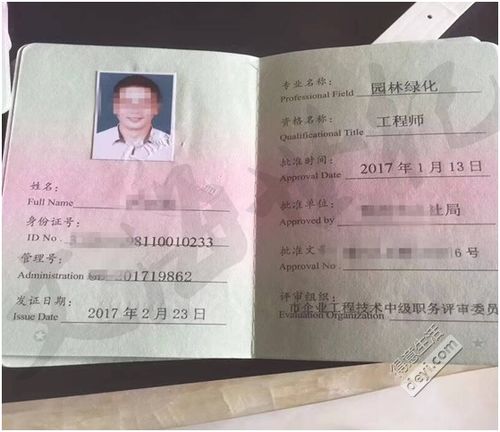 姓名：
Full Name
身份证号：
ID No. 98110010233
管理号：
Administration 201719862
发证日期：
Issue Date 2017 年 2 月 23 日
专业名称：
Professional Field 园林绿化
资格名称：
Qualificational Title 工程师
批准时间：
Approval Date 2017 年 1 月 13 日
批准单位：
Approved by 社局
批准文号
Approval No. 6 号
评审组织：
Evaluation Organization
市企业工程技术中级职务评审委员
得意生活
deyi.com